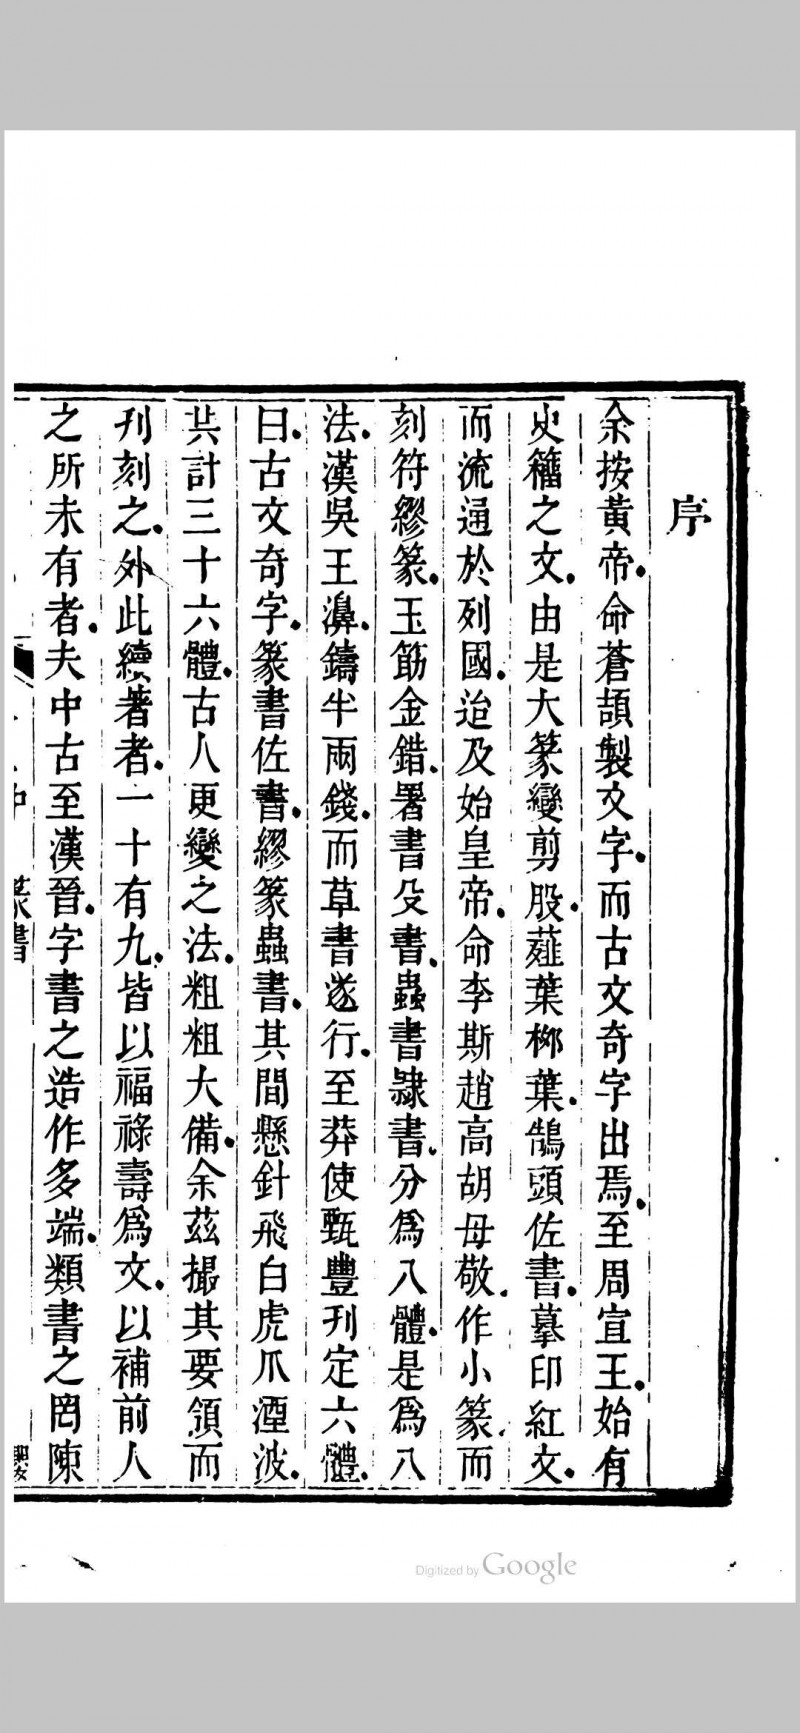 序
余按黃帝命蒼頡製文字而古文奇字出焉至周宣王始有
史籀之文由是大篆變剪股薤葉柳葉鵠頭佐書摹印紅文
而流通於列國迨及始皇帝命李斯趙高胡母敬作小篆而
刻符繆篆玉筯金錯署書殳書蟲書隸書分爲八體是爲八
法漢吳王濞鑄半兩錢而草書遂行至莽使甄豐刊定六體
曰古文奇字篆書佐書繆篆蟲書其間懸針飛白虎爪湮波
共計三十六體古人更變之法粗粗大備余茲撮其要領而
刊刻之外此續著者一十有九皆以福祿壽爲文以補前人
之所未有者夫中古至漢晉字書之造作多端類書之罔陳
篆書
Digitized by Google